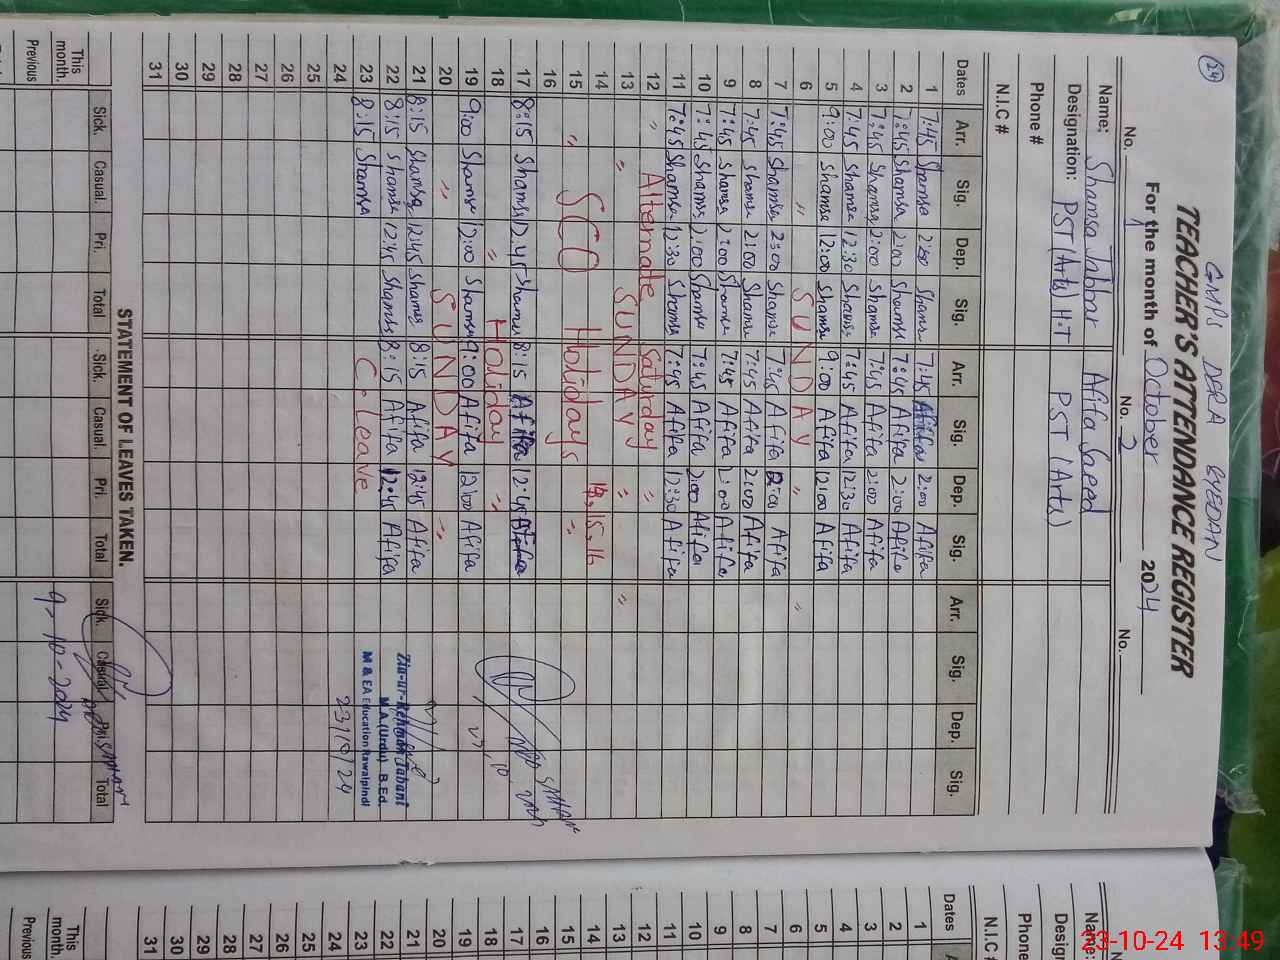 24
GMPS DERA
TEACHER'S ATTENDANCE REGISTER
For the month of October 2024
No. 1 No. 2 No.
Name: Shamsa Jabbar Afifa Saeed
Designation: PST (Arts) H.T PST (Arts)
Phone #
N.I.C #
Dates Arr. Sig. Dep. Sig. Arr. Sig. Dep. Sig. Arr. Sig. Dep. Sig.
1 7:45 Shamsa 2:00 Shamsa 7:45 Afifa 2:00 Afifa
2 7:45 Shamsa 2:00 Shamsa 7:45 Afifa 2:00 Afifa
3 7:45 Shamsa 2:00 Shamsa 7:45 Afifa 2:00 Afifa
4 7:45 Shamsa 12:30 Shamsa 7:45 Afifa 12:30 Afifa
5 9:00 Shamsa 12:00 Shamsa 9:00 Afifa 12:00 Afifa
6 " SUNDAY " "
7 7:45 Shamsa 2:00 Shamsa 7:45 Afifa 2:00 Afifa
8 7:45 Shamsa 2:00 Shamsa 7:45 Afifa 2:00 Afifa
9 7:45 Shamsa 2:00 Shamsa 7:45 Afifa 2:00 Afifa
10 7:45 Shamsa 2:00 Shamsa 7:45 Afifa 2:00 Afifa
11 7:45 Shamsa 12:30 Shamsa 7:45 Afifa 12:30 Afifa
12 " Alternate Saturday "
13 " SUNDAY " "
14 14, 15, 16
15 " SCO Holidays "
16
17 8:15 Shamsa 12:45 Shamsa 8:15 Afifa 12:45 Afifa
18 " Holiday "
19 9:00 Shamsa 12:00 Shamsa 9:00 Afifa 12:00 Afifa
20 " SUNDAY "
21 8:15 Shamsa 12:45 Shamsa 8:15 Afifa 12:45 Afifa
22 8:15 Shamsa 12:45 Shamsa 8:15 Afifa 12:45 Afifa
23 8:15 Shamsa C-Leave
24
25
26
27
28
29
30
31
Zia-ur-Rehman Jabani
M.A.(Urdu) B.Ed.
M & EA Education Rawalpindi
23/10/24
STATEMENT OF LEAVES TAKEN.
Sick. Casual. Pri. Total Sick. Casual. Pri. Total Sick. Casual Pri. Total
This month.
Previous
9-10-2024
N
Name:
Design
Phone
N.I.C #
Dates
1
2
3
4
5
6
7
8
9
10
11
12
13
14
15
16
17
18
19
20
21
22
23
24
25
26
27
28
29
30
31
This month.
Previous
23-10-24 13:49